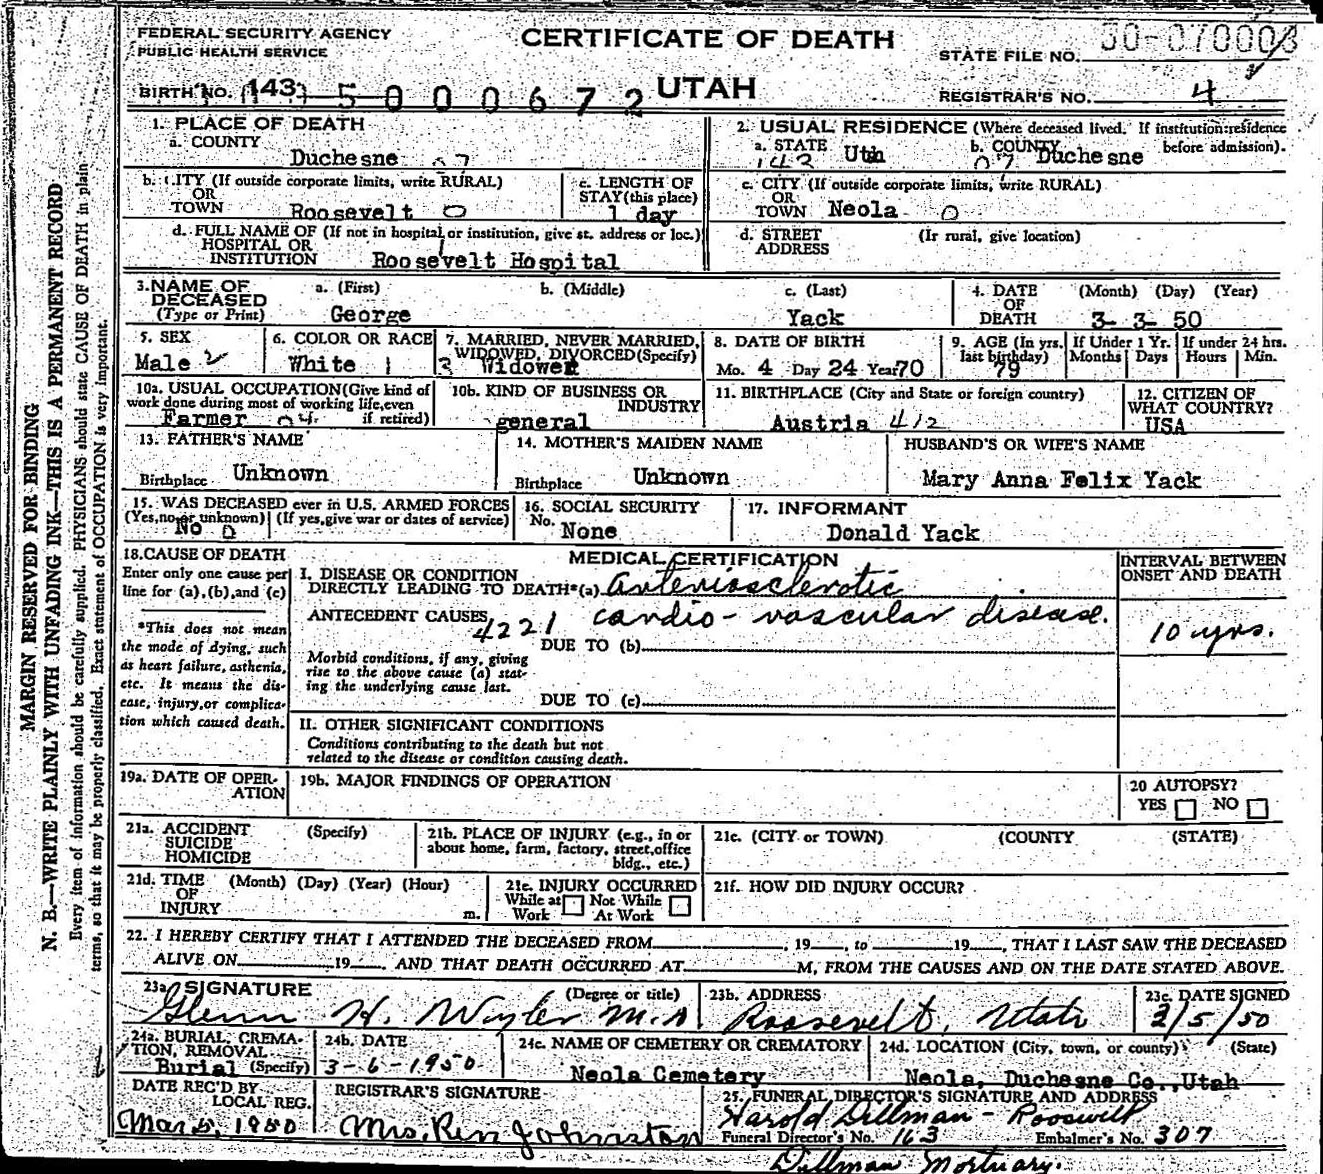 FEDERAL SECURITY AGENCY
PUBLIC HEALTH SERVICE
CERTIFICATE OF DEATH
STATE FILE NO.
BIRTH NO. 143
5000672
UTAH
REGISTRAR'S NO. 4
1. PLACE OF DEATH
a. COUNTY
Duchesne 07
2. USUAL RESIDENCE (Where deceased lived. If institution: residence before admission).
a. STATE Utah
143
b. COUNTY Duchesne
07
b. CITY (If outside corporate limits, write RURAL)
OR
TOWN Roosevelt 0
c. LENGTH OF
STAY (this place)
1 day
c. CITY (If outside corporate limits, write RURAL)
OR
TOWN Neola 0
d. FULL NAME OF (If not in hospital or institution, give st. address or loc.)
HOSPITAL OR
INSTITUTION Roosevelt Hospital
d. STREET (If rural, give location)
ADDRESS
3. NAME OF
DECEASED
(Type or Print)
a. (First)
George
b. (Middle)
c. (Last)
Yack
4. DATE
OF
DEATH
(Month) (Day) (Year)
3- 3- 50
5. SEX
Male 2
6. COLOR OR RACE
White 1
7. MARRIED, NEVER MARRIED,
WIDOWED, DIVORCED (Specify)
3 Widower
8. DATE OF BIRTH
Mo. 4 Day 24 Year 70
9. AGE (In yrs.
last birthday)
79
If Under 1 Yr.
Months Days
If under 24 hrs.
Hours Min.
10a. USUAL OCCUPATION (Give kind of
work done during most of working life, even
if retired)
Farmer 04
10b. KIND OF BUSINESS OR
INDUSTRY
general
11. BIRTHPLACE (City and State or foreign country)
Austria 412
12. CITIZEN OF
WHAT COUNTRY?
USA
13. FATHER'S NAME
Birthplace Unknown
14. MOTHER'S MAIDEN NAME
Birthplace Unknown
HUSBAND'S OR WIFE'S NAME
Mary Anna Felix Yack
15. WAS DECEASED ever in U.S. ARMED FORCES
(Yes, no or unknown) (If yes, give war or dates of service)
No 0
16. SOCIAL SECURITY
No. None
17. INFORMANT
Donald Yack
18. CAUSE OF DEATH
Enter only one cause per
line for (a), (b), and (c)
*This does not mean
the mode of dying, such
as heart failure, asthenia,
etc. It means the dis-
ease, injury, or complica-
tion which caused death.
MEDICAL CERTIFICATION
INTERVAL BETWEEN
ONSET AND DEATH
I. DISEASE OR CONDITION
DIRECTLY LEADING TO DEATH*(a) Arteriosclerotic
ANTECEDENT CAUSES 4221 cardio-vascular disease.
10 yrs.
DUE TO (b)
Morbid conditions, if any, giving
rise to the above cause (a) stat-
ing the underlying cause last.
DUE TO (c)
II. OTHER SIGNIFICANT CONDITIONS
Conditions contributing to the death but not
related to the disease or condition causing death.
19a. DATE OF OPER-
ATION
19b. MAJOR FINDINGS OF OPERATION
20 AUTOPSY?
YES NO
21a. ACCIDENT (Specify)
SUICIDE
HOMICIDE
21b. PLACE OF INJURY (e.g., in or
about home, farm, factory, street, office
bldg., etc.)
21c. (CITY or TOWN) (COUNTY) (STATE)
21d. TIME (Month) (Day) (Year) (Hour)
OF
INJURY m.
21e. INJURY OCCURRED
While at Not While
Work At Work
21f. HOW DID INJURY OCCUR?
22. I HEREBY CERTIFY THAT I ATTENDED THE DECEASED FROM , 19 , to 19 , THAT I LAST SAW THE DECEASED
ALIVE ON 19 , AND THAT DEATH OCCURRED AT M, FROM THE CAUSES AND ON THE DATE STATED ABOVE.
23a SIGNATURE (Degree or title)
Glenn H. M.D.
23b. ADDRESS
Roosevelt, Utah
23c. DATE SIGNED
3/5/50
24a. BURIAL, CREMA-
TION, REMOVAL
Burial (Specify)
24b. DATE
3-6-1950
24c. NAME OF CEMETERY OR CREMATORY
Neola Cemetery
24d. LOCATION (City, town, or county) (State)
Neola, Duchesne Co., Utah
DATE REC'D BY
LOCAL REG.
Mar 5, 1950
REGISTRAR'S SIGNATURE
Mrs. Johnston
25. FUNERAL DIRECTOR'S SIGNATURE AND ADDRESS
Harold Dillman - Roosevelt
Funeral Director's No. 163 Embalmer's No. 307
Dillman Mortuary.
MARGIN RESERVED FOR BINDING
N. B.—WRITE PLAINLY WITH UNFADING INK—THIS IS A PERMANENT RECORD
Every item of information should be carefully supplied. PHYSICIANS should state CAUSE OF DEATH in plain
terms, so that it may be properly classified. Exact statement of OCCUPATION is very important.